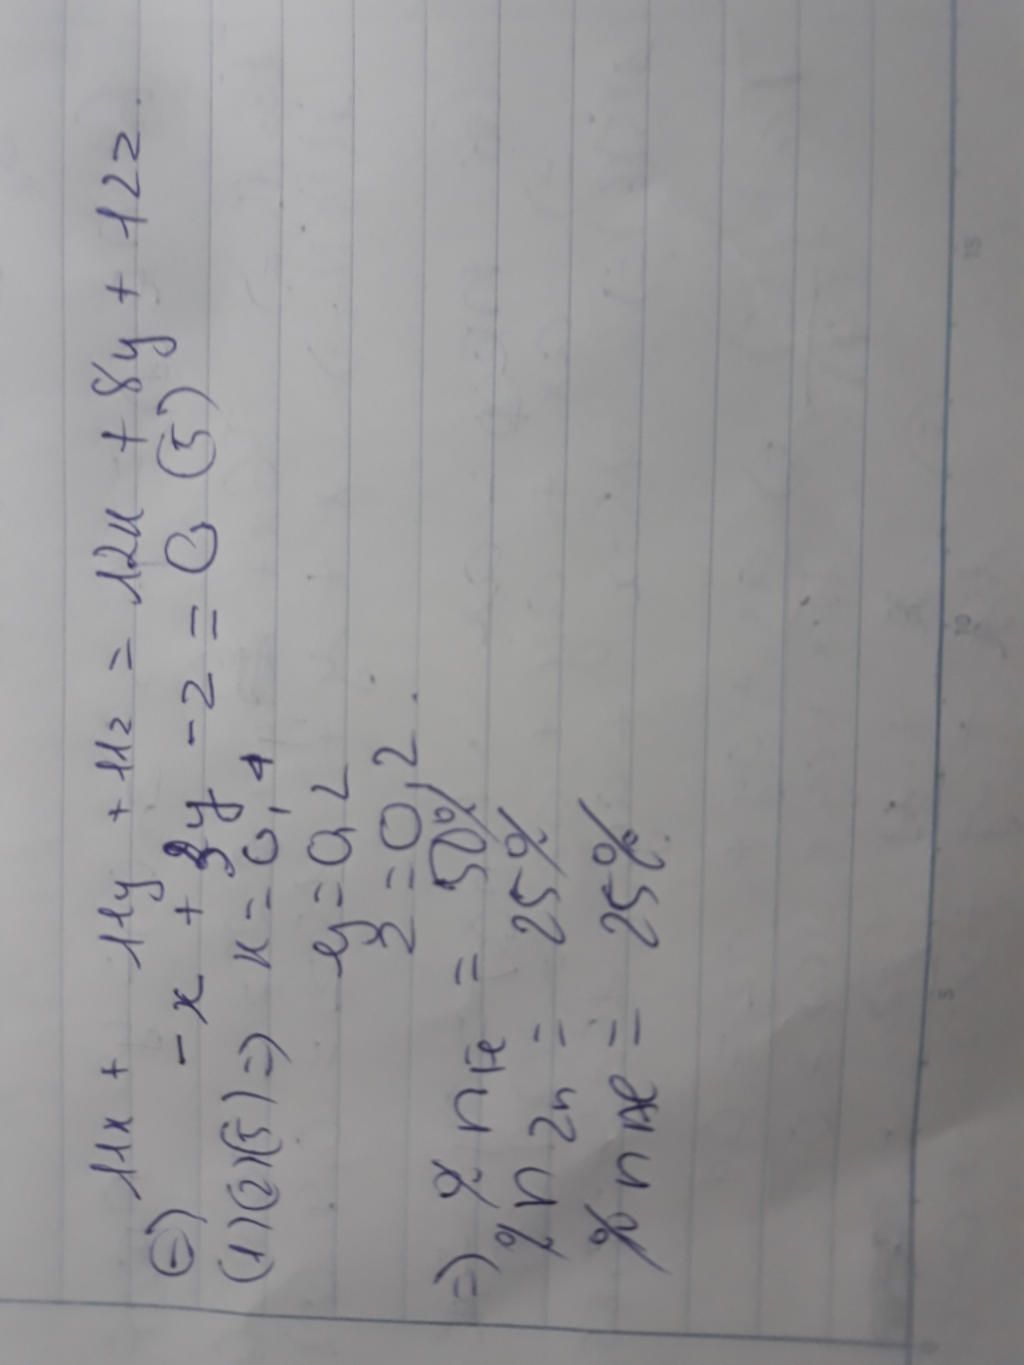 11x + 11y + 11z = 12x + 8y + 12z.
(=) -x + 3y - z = 0 (5)
(1)(2)(5) => x = 0,4
y = 0,2
z = 0,2.
=) % nFe = 50%
% n Zn = 25%
% n Al = 25%.
5
10
15